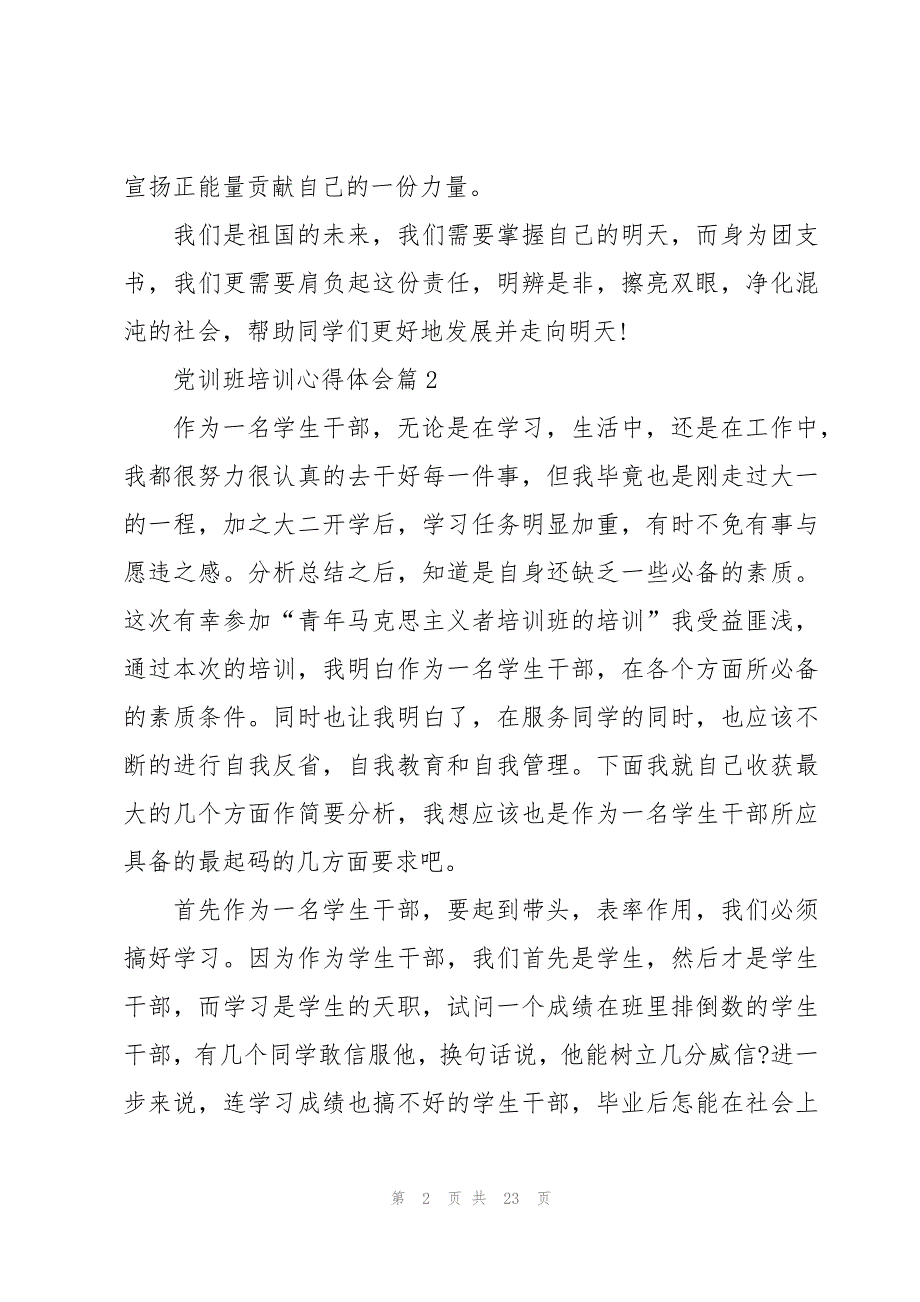 宣扬正能量贡献自己的一份力量。
我们是祖国的未来，我们需要掌握自己的明天，而身为团支
书，我们更需要肩负起这份责任，明辨是非，擦亮双眼，净化混
沌的社会，帮助同学们更好地发展并走向明天!
党训班培训心得体会篇 2
作为一名学生干部，无论是在学习，生活中，还是在工作中，
我都很努力很认真的去干好每一件事，但我毕竟也是刚走过大一
的一程，加之大二开学后，学习任务明显加重，有时不免有事与
愿违之感。分析总结之后，知道是自身还缺乏一些必备的素质。
这次有幸参加“青年马克思主义者培训班的培训”我受益匪浅，
通过本次的培训，我明白作为一名学生干部，在各个方面所必备
的素质条件。同时也让我明白了，在服务同学的同时，也应该不
断的进行自我反省，自我教育和自我管理。下面我就自己收获最
大的几个方面作简要分析，我想应该也是作为一名学生干部所应
具备的最起码的几方面要求吧。
首先作为一名学生干部，要起到带头，表率作用，我们必须
搞好学习。因为作为学生干部，我们首先是学生，然后才是学生
干部，而学习是学生的天职，试问一个成绩在班里排倒数的学生
干部，有几个同学敢信服他，换句话说，他能树立几分威信?进一
步来说，连学习成绩也搞不好的学生干部，毕业后怎能在社会上
第 2 页 共 23 页